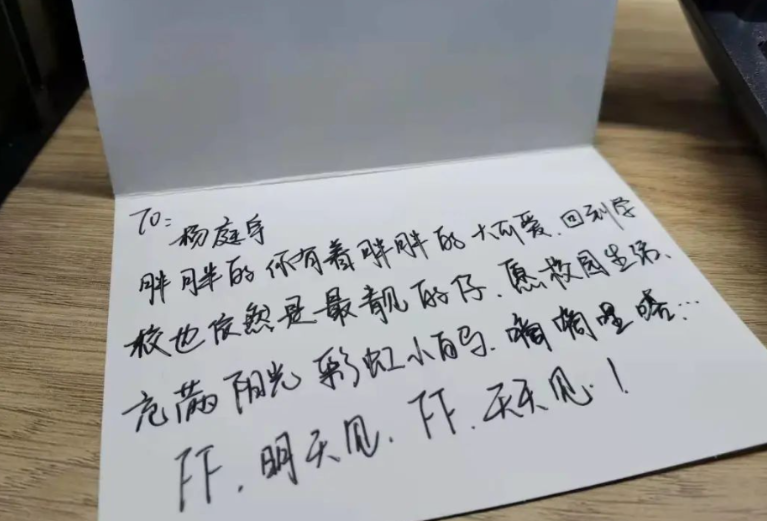 TO:
杨庭宇
胖胖的你有着胖胖的大可爱.回到学
校也依然是最靓的仔.愿校园生活.
充满阳光彩虹小白马.嘀嘀哩嗒…
FF.明天见.FF.天天见.!